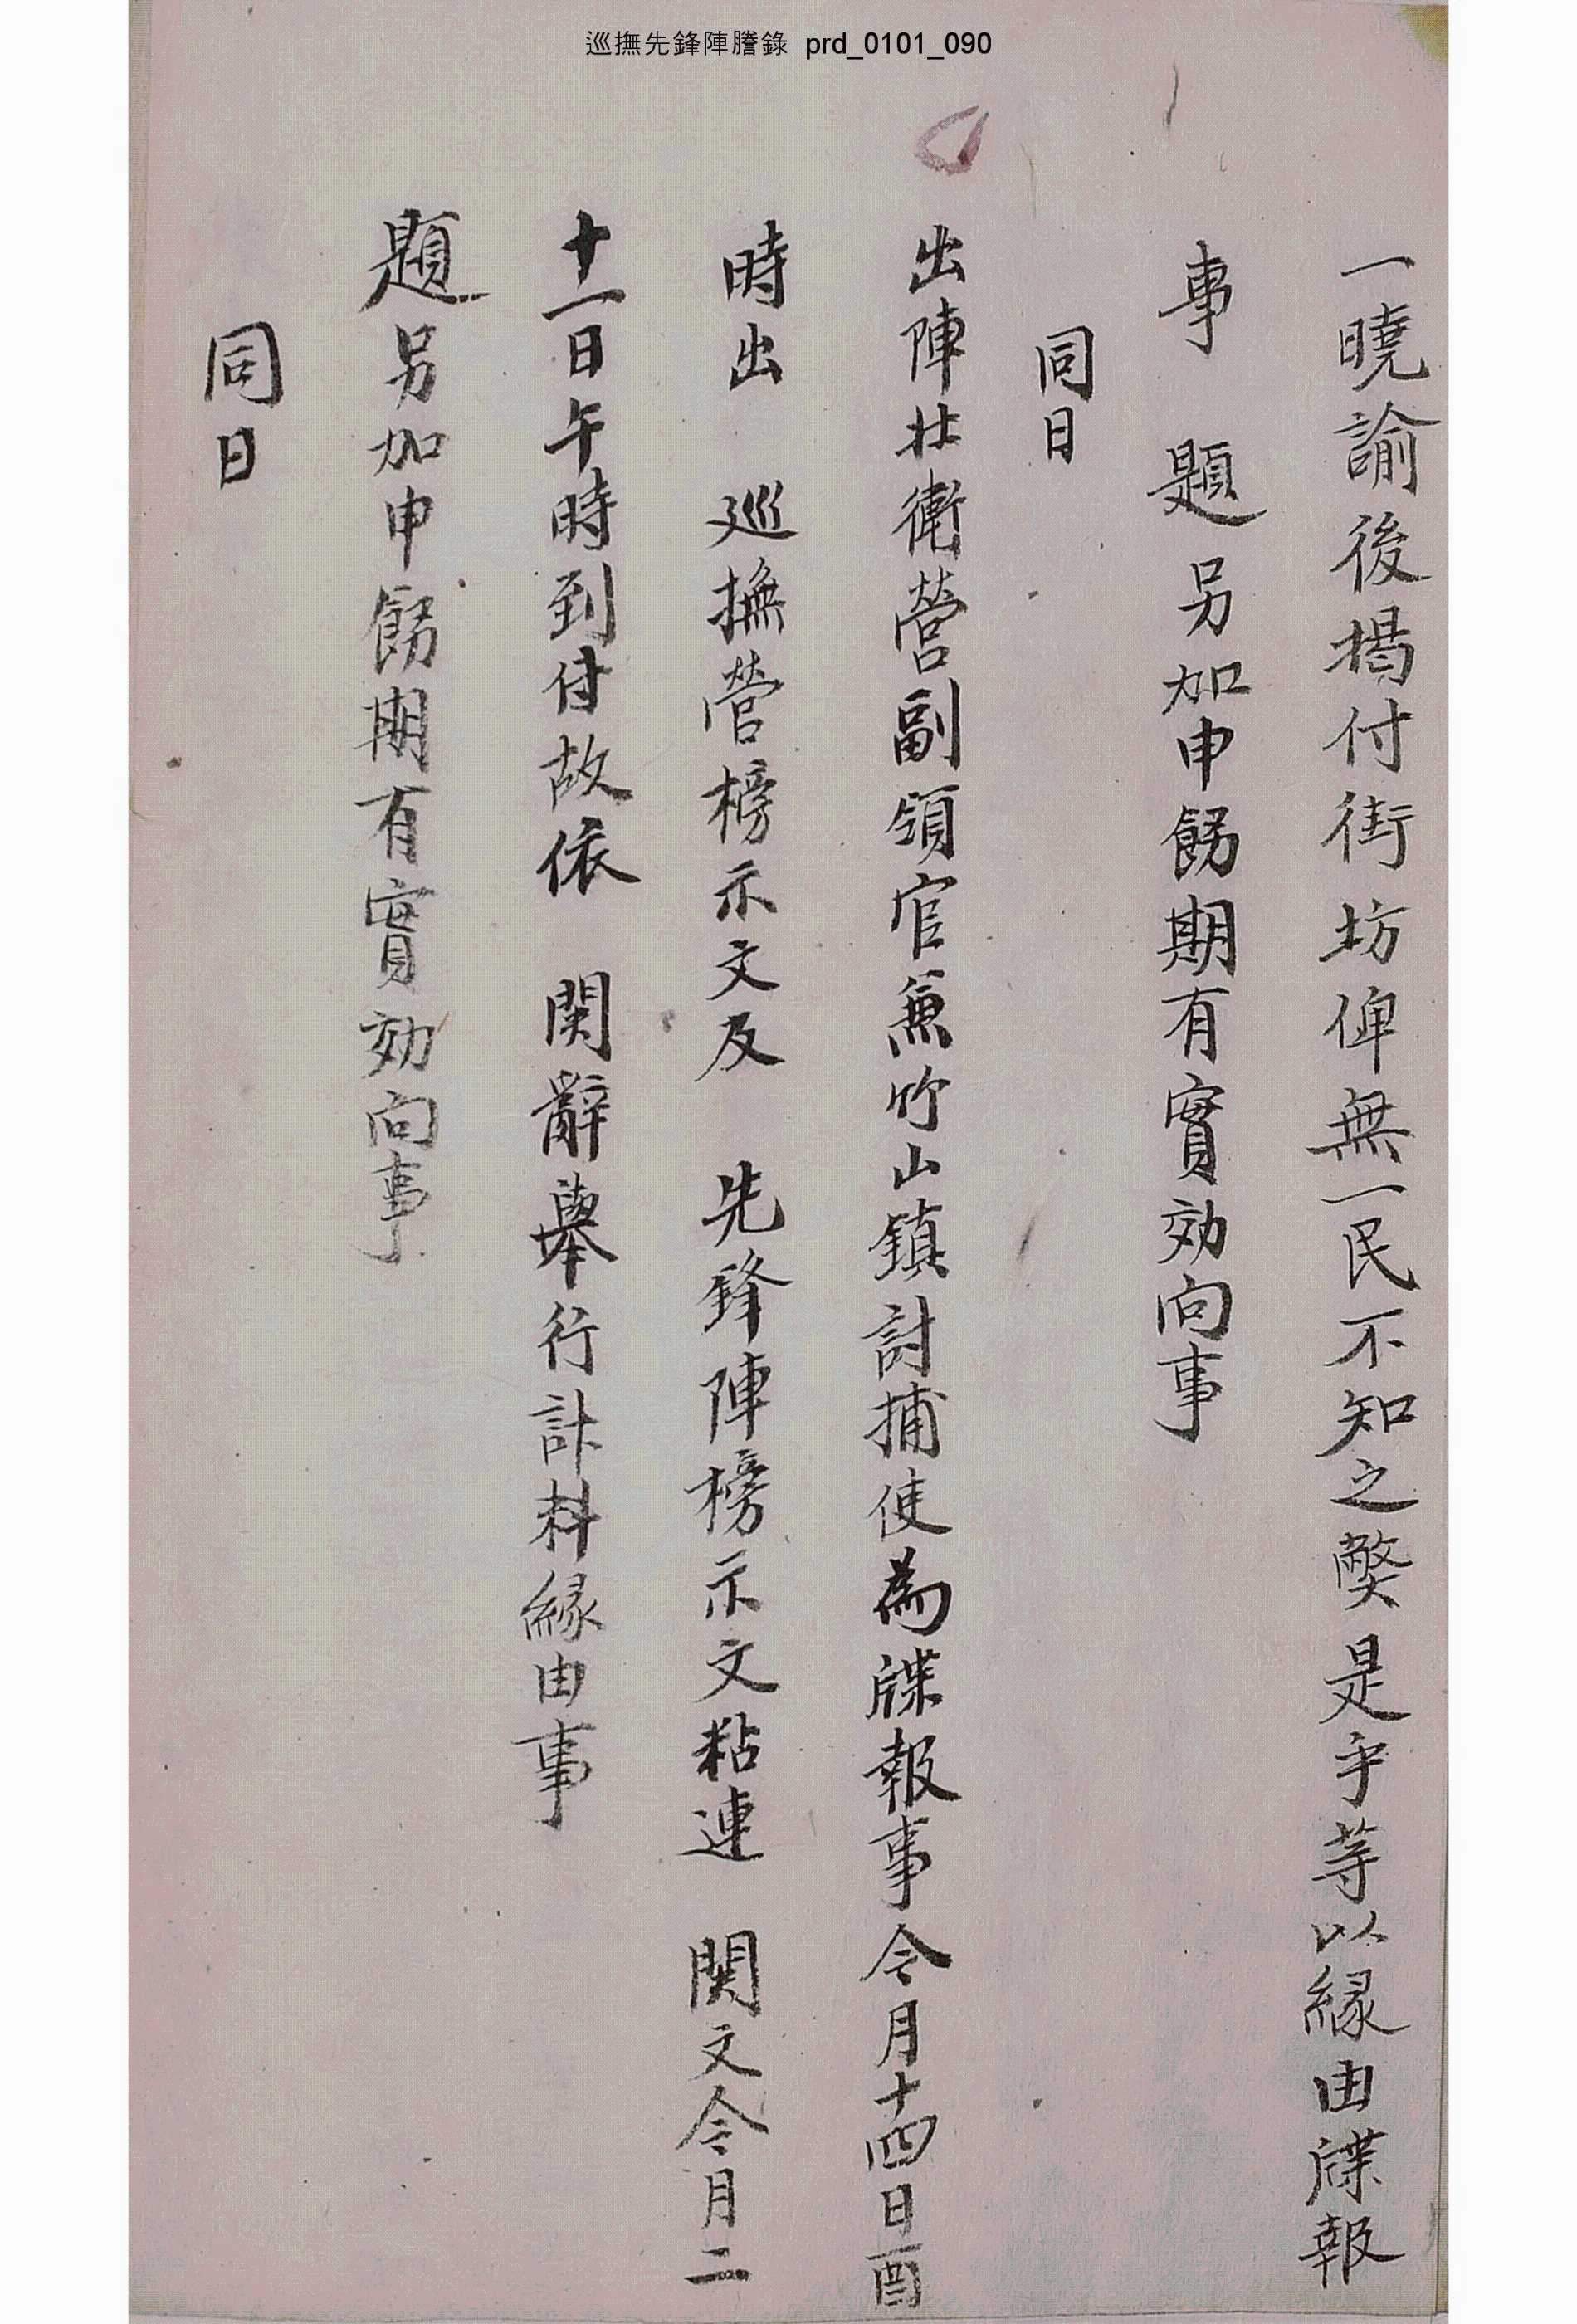 巡撫先鋒陣謄錄 prd_0101_090
一曉諭後揭付街坊俾無一民不知之獘是乎等以緣由牒報
事 題另加申飭期有實効向事
同日
出陣壯衛營副領官兼竹山鎮討捕使為牒報事今月十四日酉
時出 巡撫營榜示文及 先鋒陣榜示文粘連 関文今月二
十一日午時到付故依 関辭擧行計料緣由事
題另加申飭期有實効向事
同日